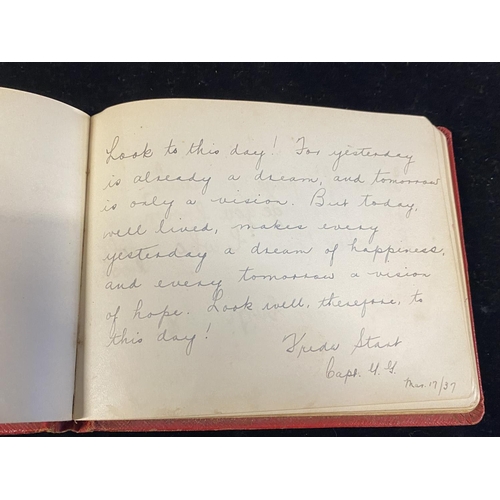 Look to this day! For yesterday
is already a dream, and tomorrow
is only a vision. But today,
well lived, makes every
yesterday a dream of happiness,
and every tomorrow a vision
of hope. Look well, therefore, to
this day!
Freda Start
Capt. Y. G.
Mar. 17/37